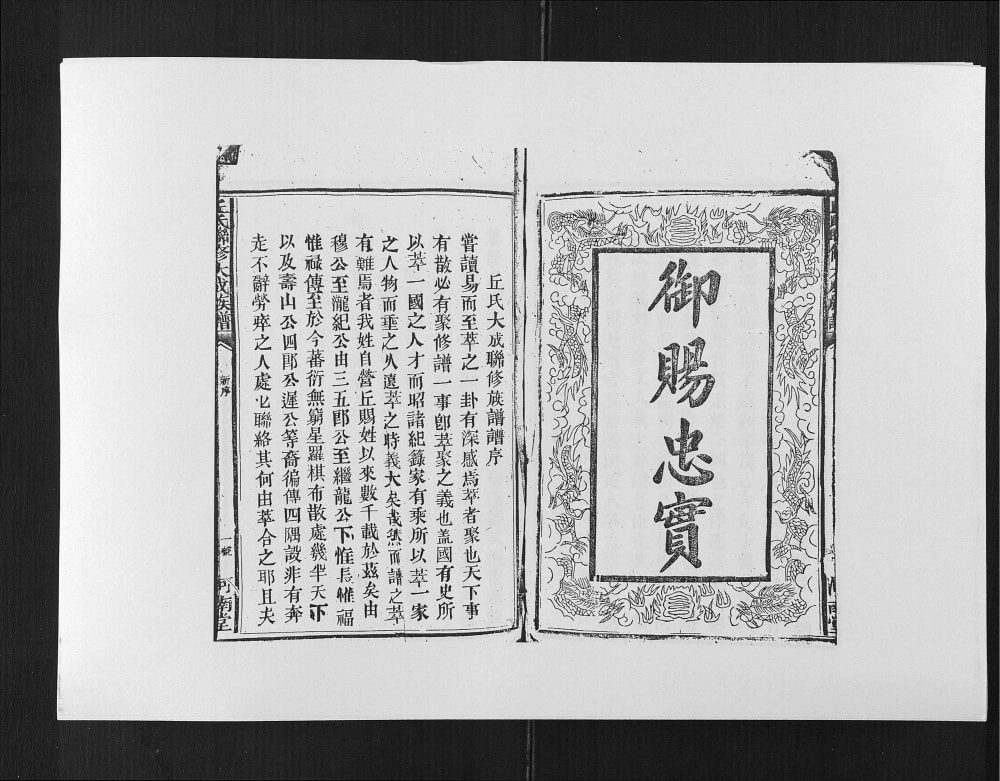 御賜忠實
丘氏大成聯修族譜譜序
嘗讀易而至萃之一卦有深感焉萃者聚也天下事
有散必有聚修譜一事卽萃聚之義也盖國有史所
以萃一國之人才而昭諸紀錄家有乘所以萃一家
之人物而垂之久遠萃之時義大矣哉然而譜之萃
有難焉者我姓自營丘賜姓以來數千載於茲矣由
穆公至瀧紀公由三五郎公至繼龍公下惟長惟福
惟祿傳至於今蕃衍無窮星羅棋布散處幾半天下
以及壽山公四郎公遲公等裔徧傳四隅設非有奔
走不辭勞瘁之人處心聯絡其何由萃合之耶且夫
丘氏聯修大成族譜
新序
一號
河南堂